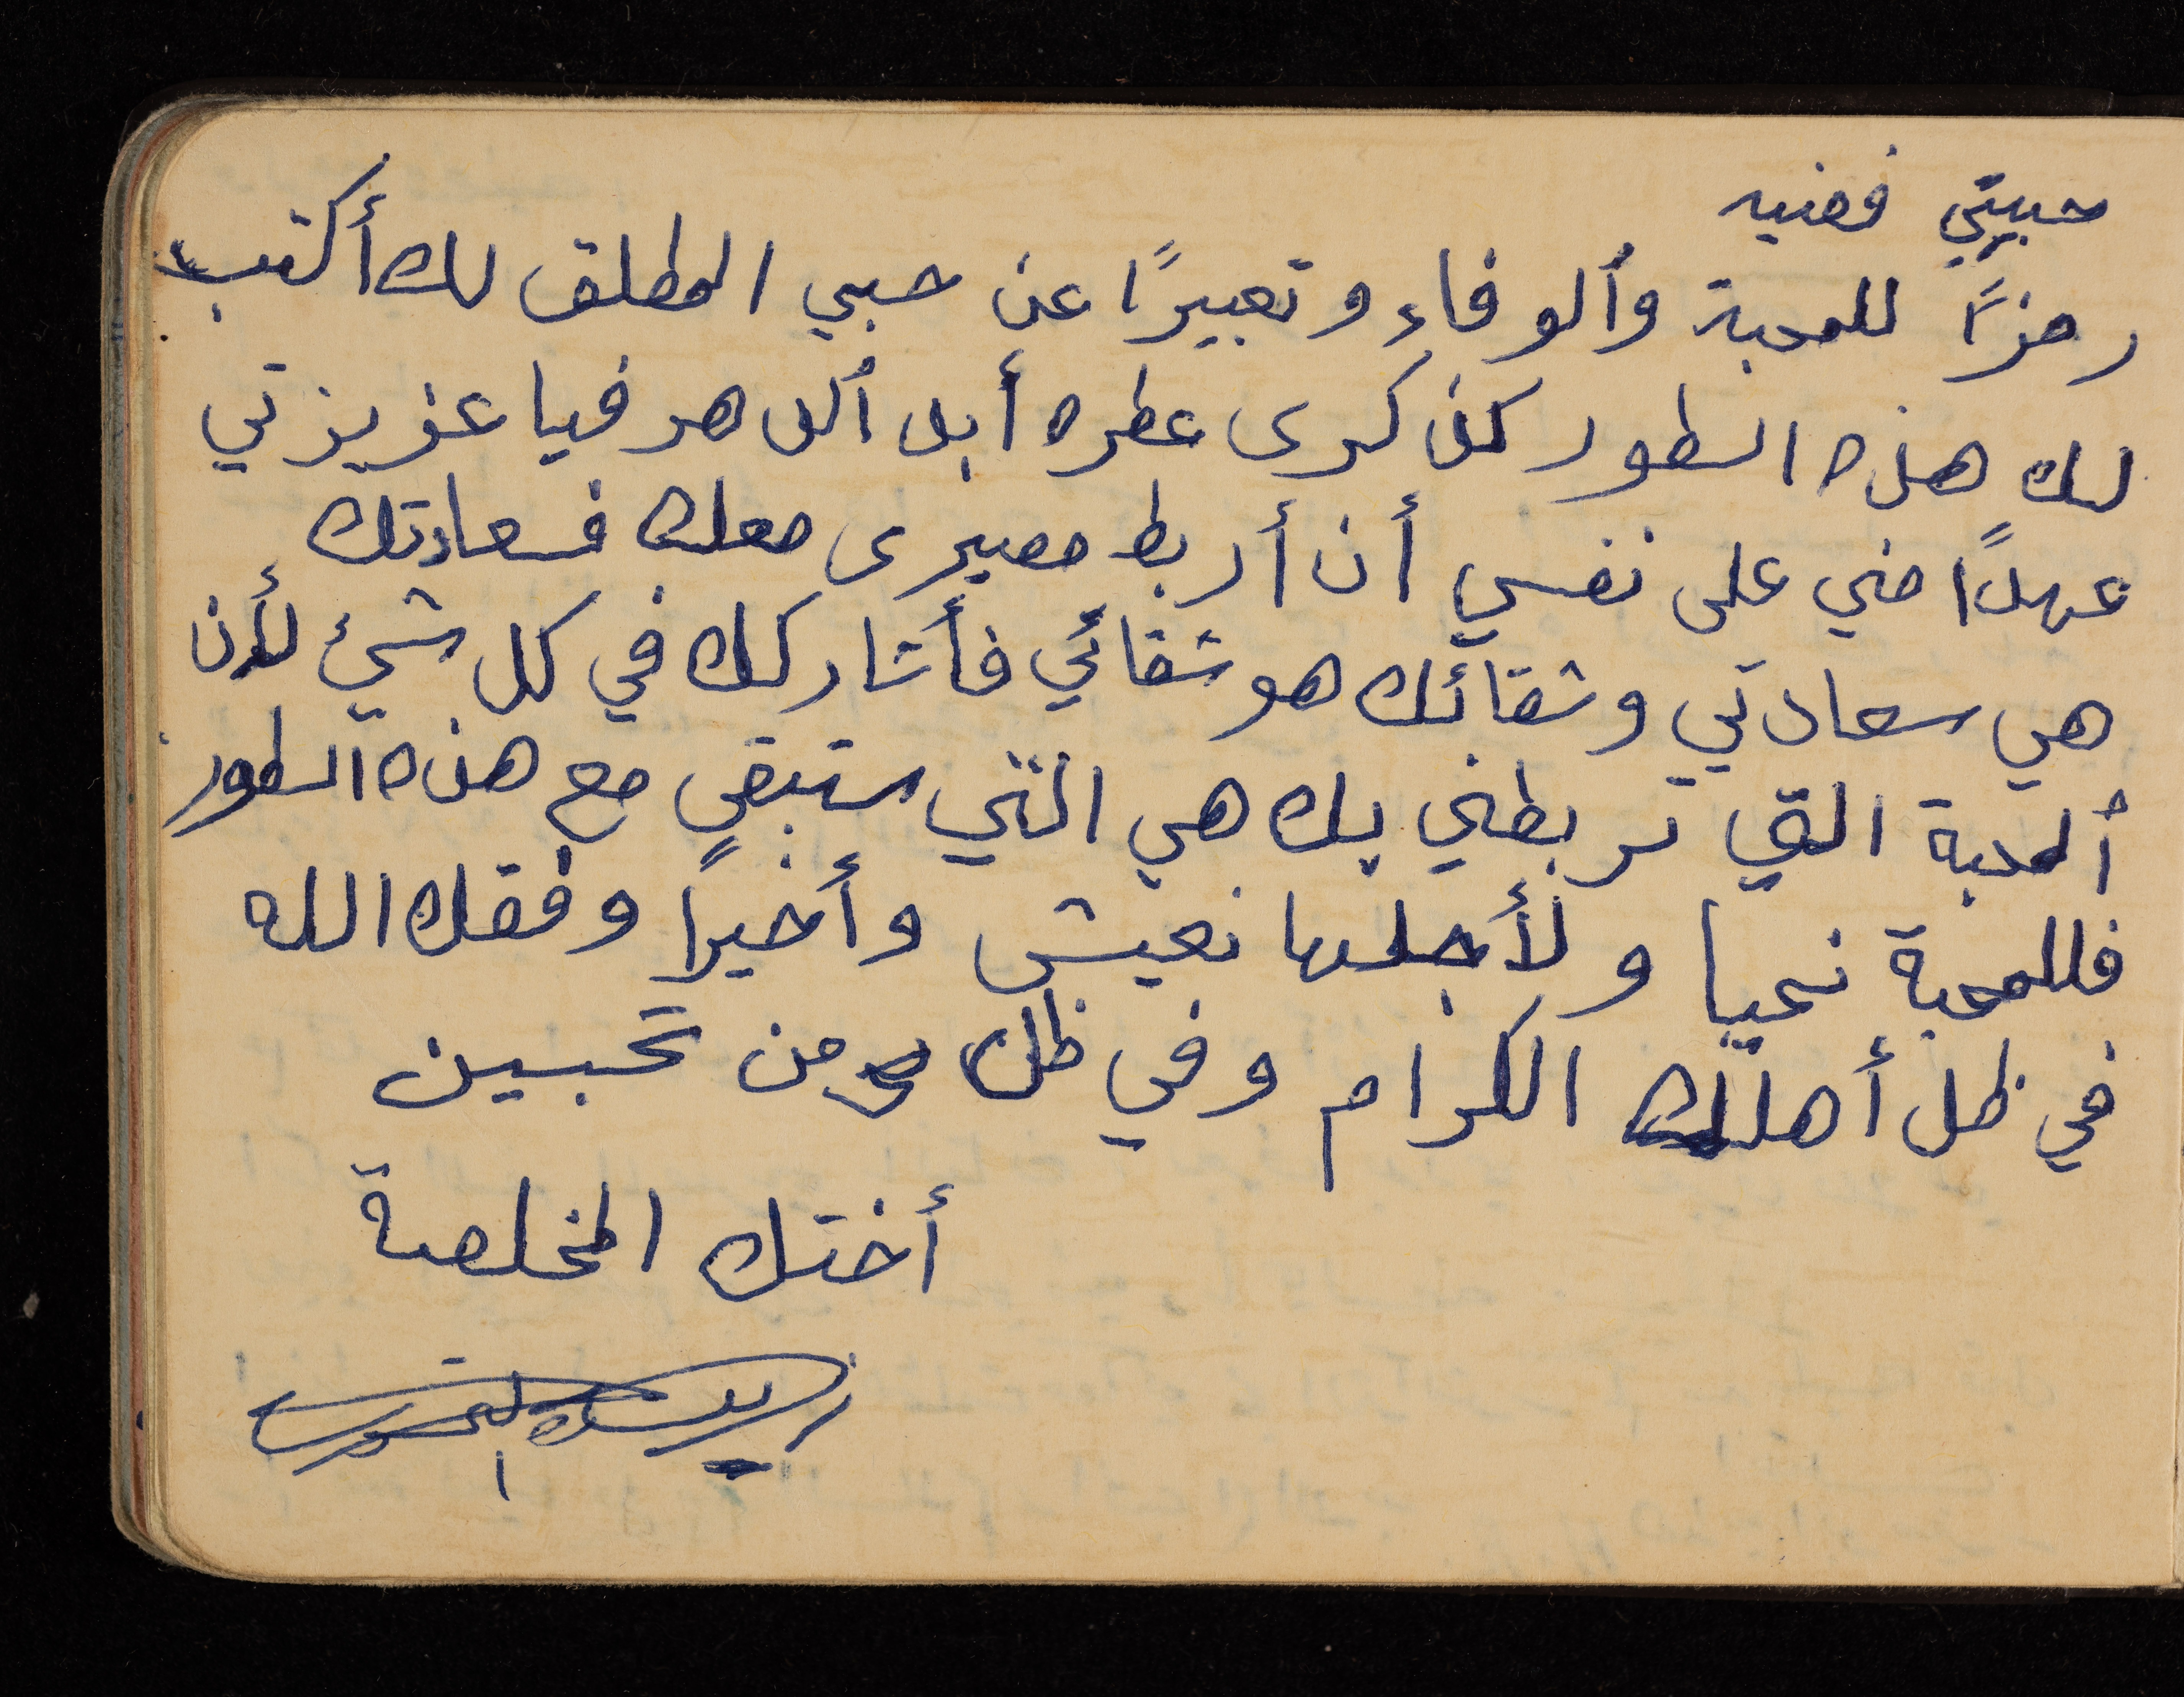 حبيبتي فضيه
رمزاً للمحبة وألوفاء وتعبيرًا عن حبي المطلق لك أكتب
لك هذه السطور كذكرى عطره أبد ألدهر فيا عزيزتي
عهدًا مني على نفسي أن أربط مصيرى معك فسعادتك
هي سعادتي وشقائك هو شقائي فأشاركك في كل شيئ لأن
ألمحبة التي تربطني بك هي التي ستبقى مع هذه السطور
فللمحبة نحيا ولأجلها نعيش وأخيرًا وفقك الله
في ظل أهلك الكرام وفي ظل من تحبين
أختك المخلصة